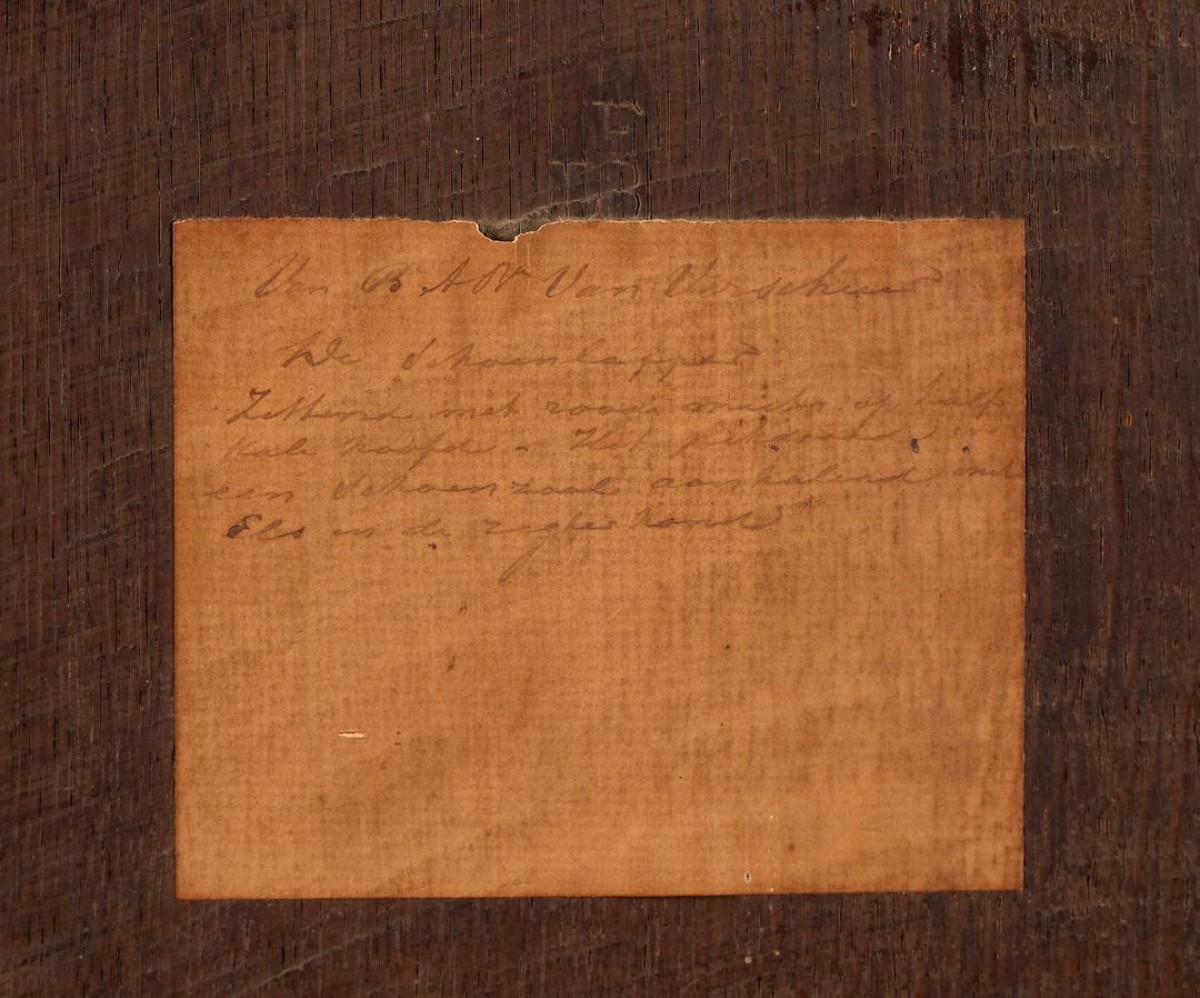 Van B A Van Verschuer
De Schoenlapper
Zittend met roode muts op half
kale hoofd - Het
een Schoenzool met
Els in de regter hand